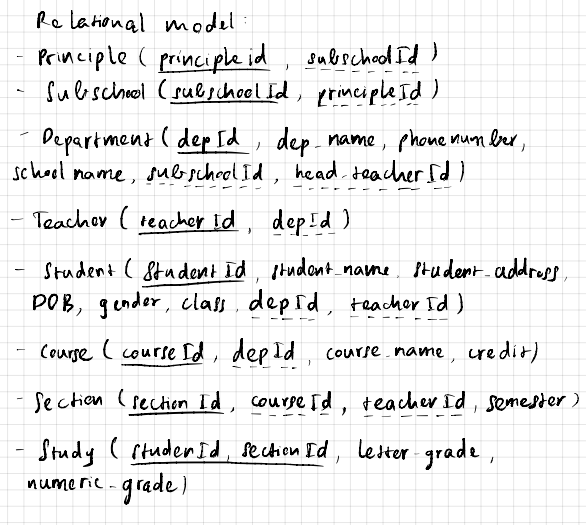 Relational model:
- Principle ( principle id , subschool Id )
- Subschool ( subschool Id , principle Id )
- Department ( dep Id , dep_name, phone number,
school name, subschool Id , head_teacher Id )
- Teacher ( teacher Id , dep Id )
- Student ( Student Id , student_name, student_address,
DOB, gender, class, dep Id , teacher Id )
- Course ( course Id , dep Id , course_name, credit )
- Section ( section Id , course Id , teacher Id , semester )
- Study ( studen Id, section Id , letter-grade ,
numeric-grade )